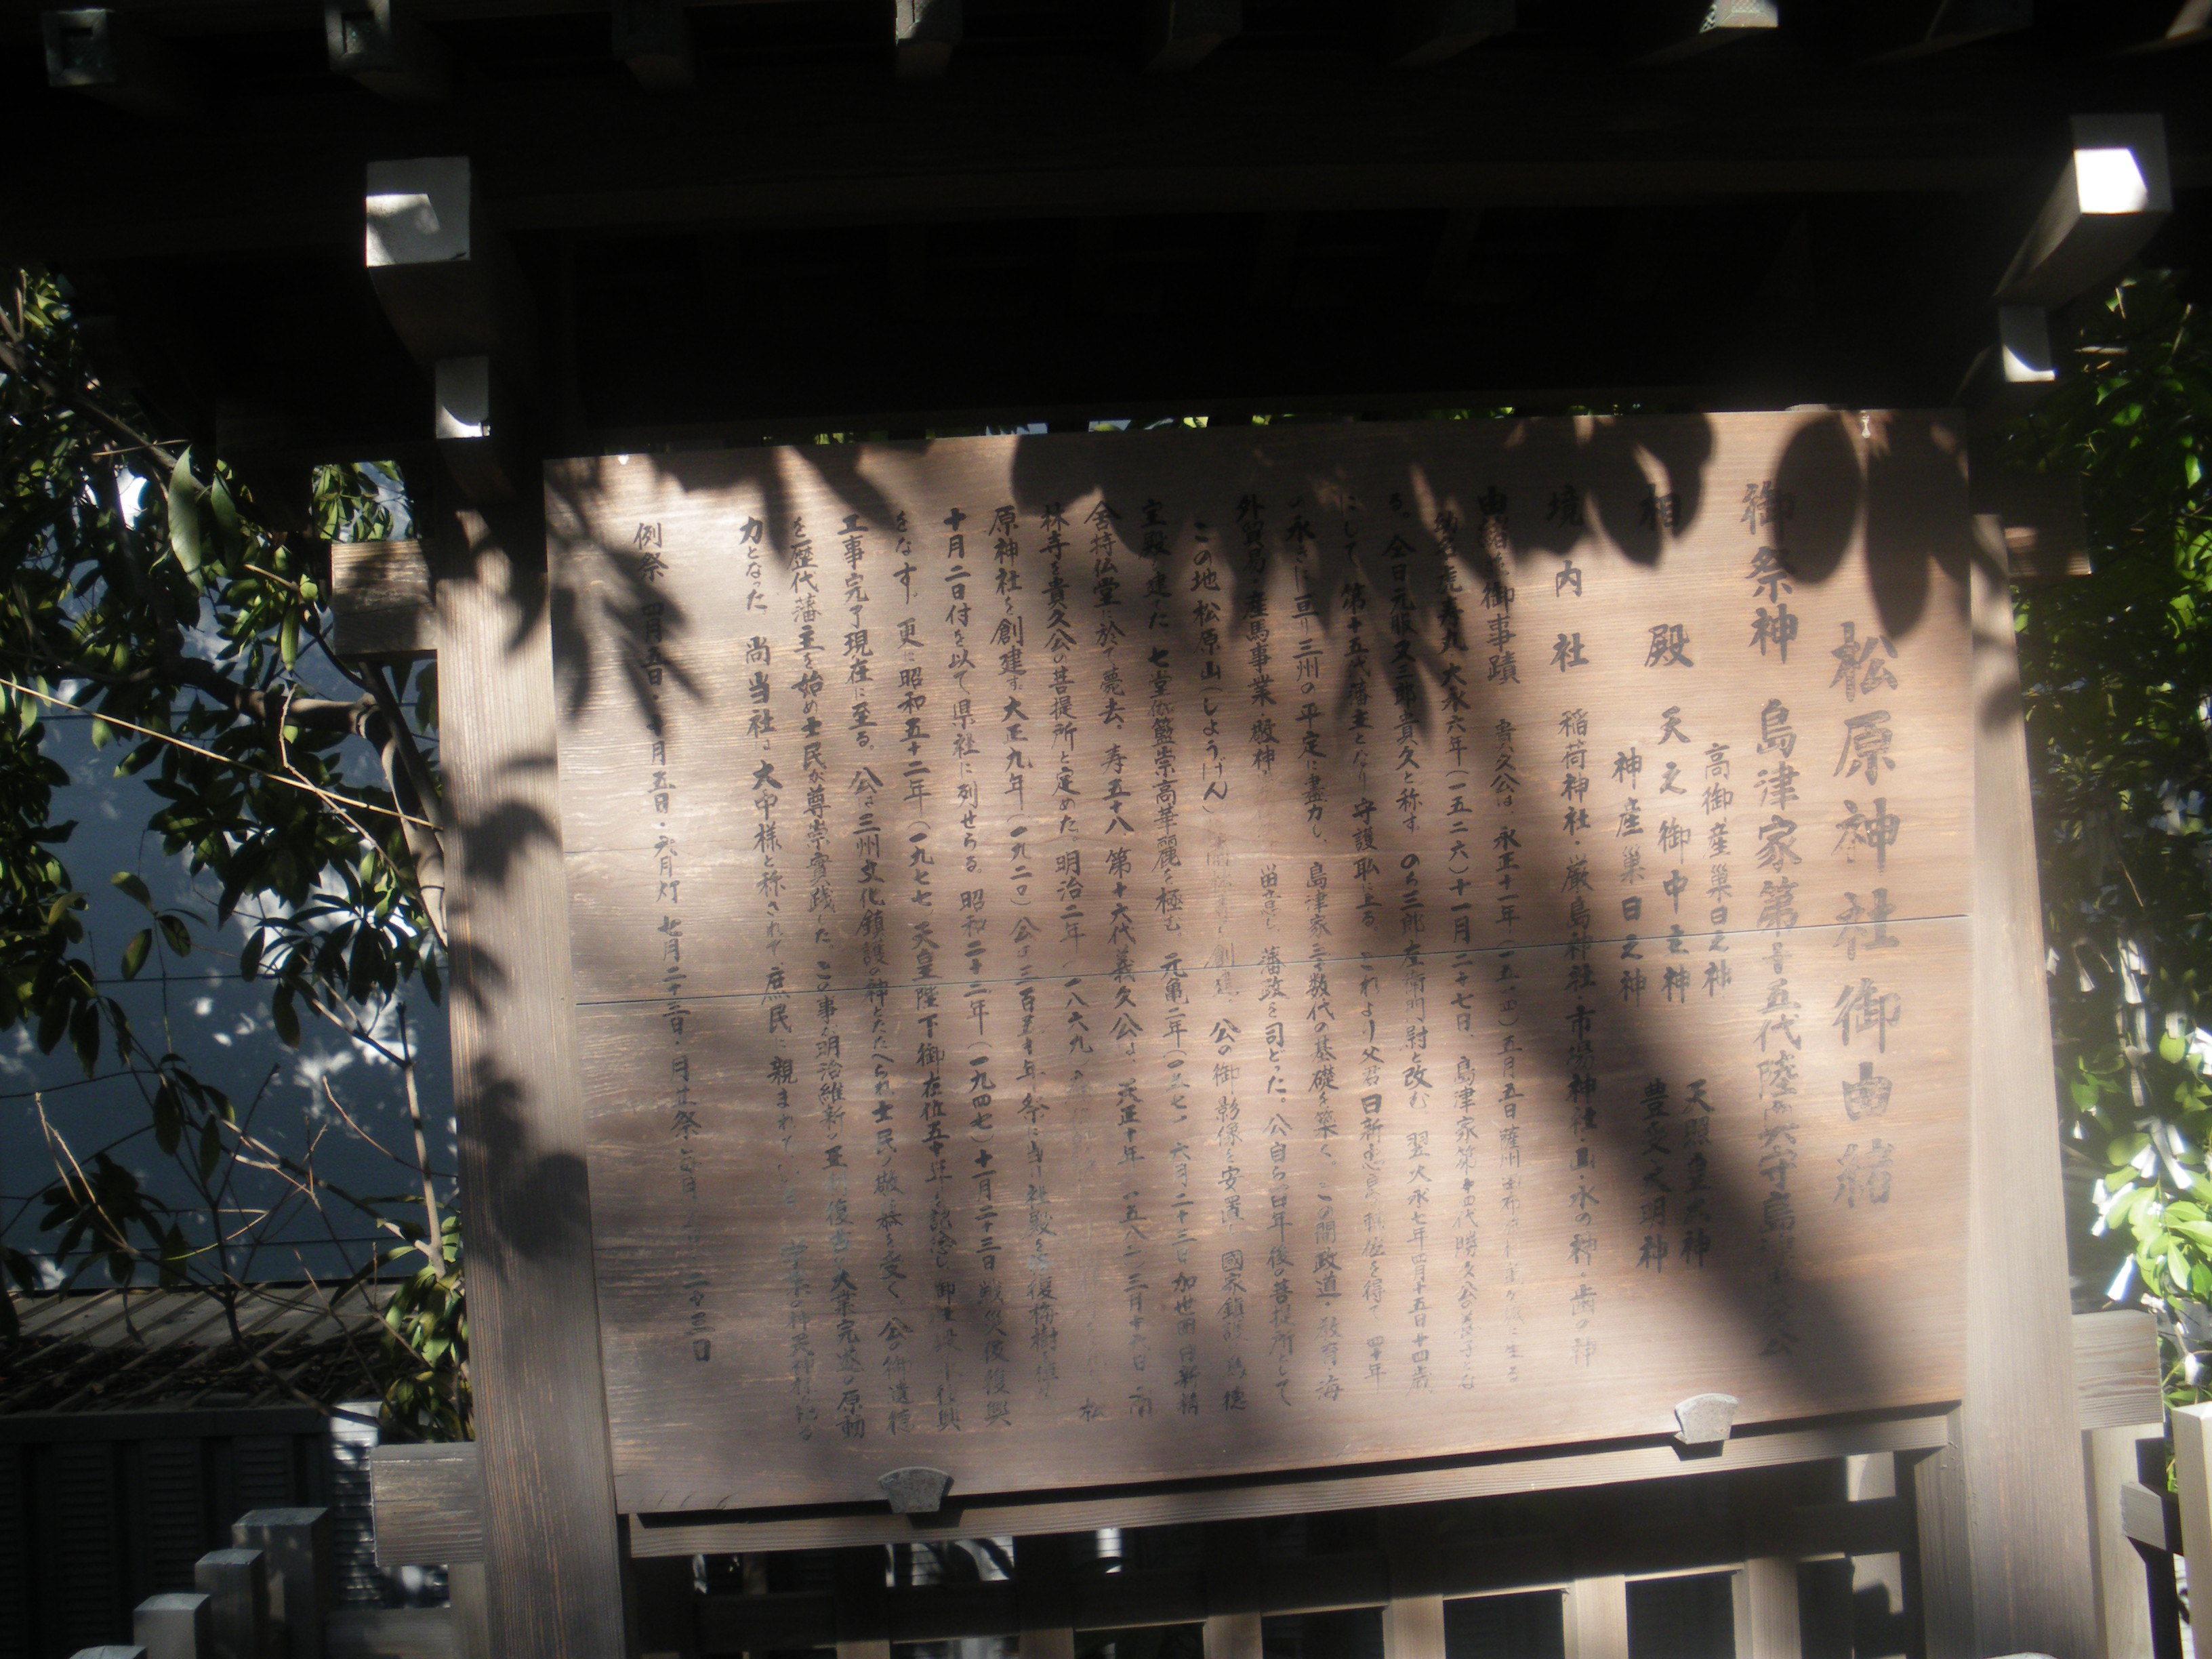 松原神社御由緒
御祭神 島津家第十五代陸奥大守島津貴久公
相殿
高御産巣日之神
天之御中主神
神産巣日之神
天照皇大神
豊受大明神
境内社 稲荷神社・厳島神社・市場神社・山・水の神・歯の神
由緒並御事蹟 貴久公は、永正十一年(一五一四)五月五日薩州 に生る
幼名虎寿丸 大永六年(一五二六)十一月二十七日、島津家第十四代勝久公の養子とな
る。仝日元服又三郎貴久と称す。のち三郎左衛門尉と改む。翌大永七年四月十五日十四歳
にして、第十五代藩主となり守護職に上る。これより父君日新忠良 を得て、四十年
の永きに亘り三州の平定に盡力し、島津家三十数代の基礎を築く。この間政道・教育・海
外貿易・産馬事業・敬神・ 留意し、藩政を司どった。公自ら百年後の菩提所として
この地松原山(しょうげん) 創建、公の御影像を安置、國家鎮護 為 徳
宝殿を建てた。七堂伽藍崇高華麗を極む 元亀二年( 六月二十三日加世田日新精
舎持仏堂に於て薨去、寿五十八 第十六代義久公は、天正十年(一五八二)三月十六日 南
林寺を貴久公の菩提所と定めた。明治二年(一八六九) 松
原神社を創建す。大正九年(一九二〇)公の三百五十年祭に当り社殿を 復梅樹を植
十月二日付を以て県社に列せらる。昭和二十二年(一九四七)十一月二十三日戦災後復興
をなす。更に昭和五十二年(一九七七)天皇陛下御在位五十年を記念し、御社殿 復興
工事完了現在に至る。公は三州文化鎮護の神とたたへられ、士民の敬慕を受く。公の御遺徳
を歴代藩主を始め士民が尊崇實践した。この事が明治維新の王制復古の大業完遂の原動
力となった 尚当社は大中様と称されて庶民に親まれて
例祭 四月五日・十月五日・六月灯 七月二十三日・月並祭 毎月 二十三日